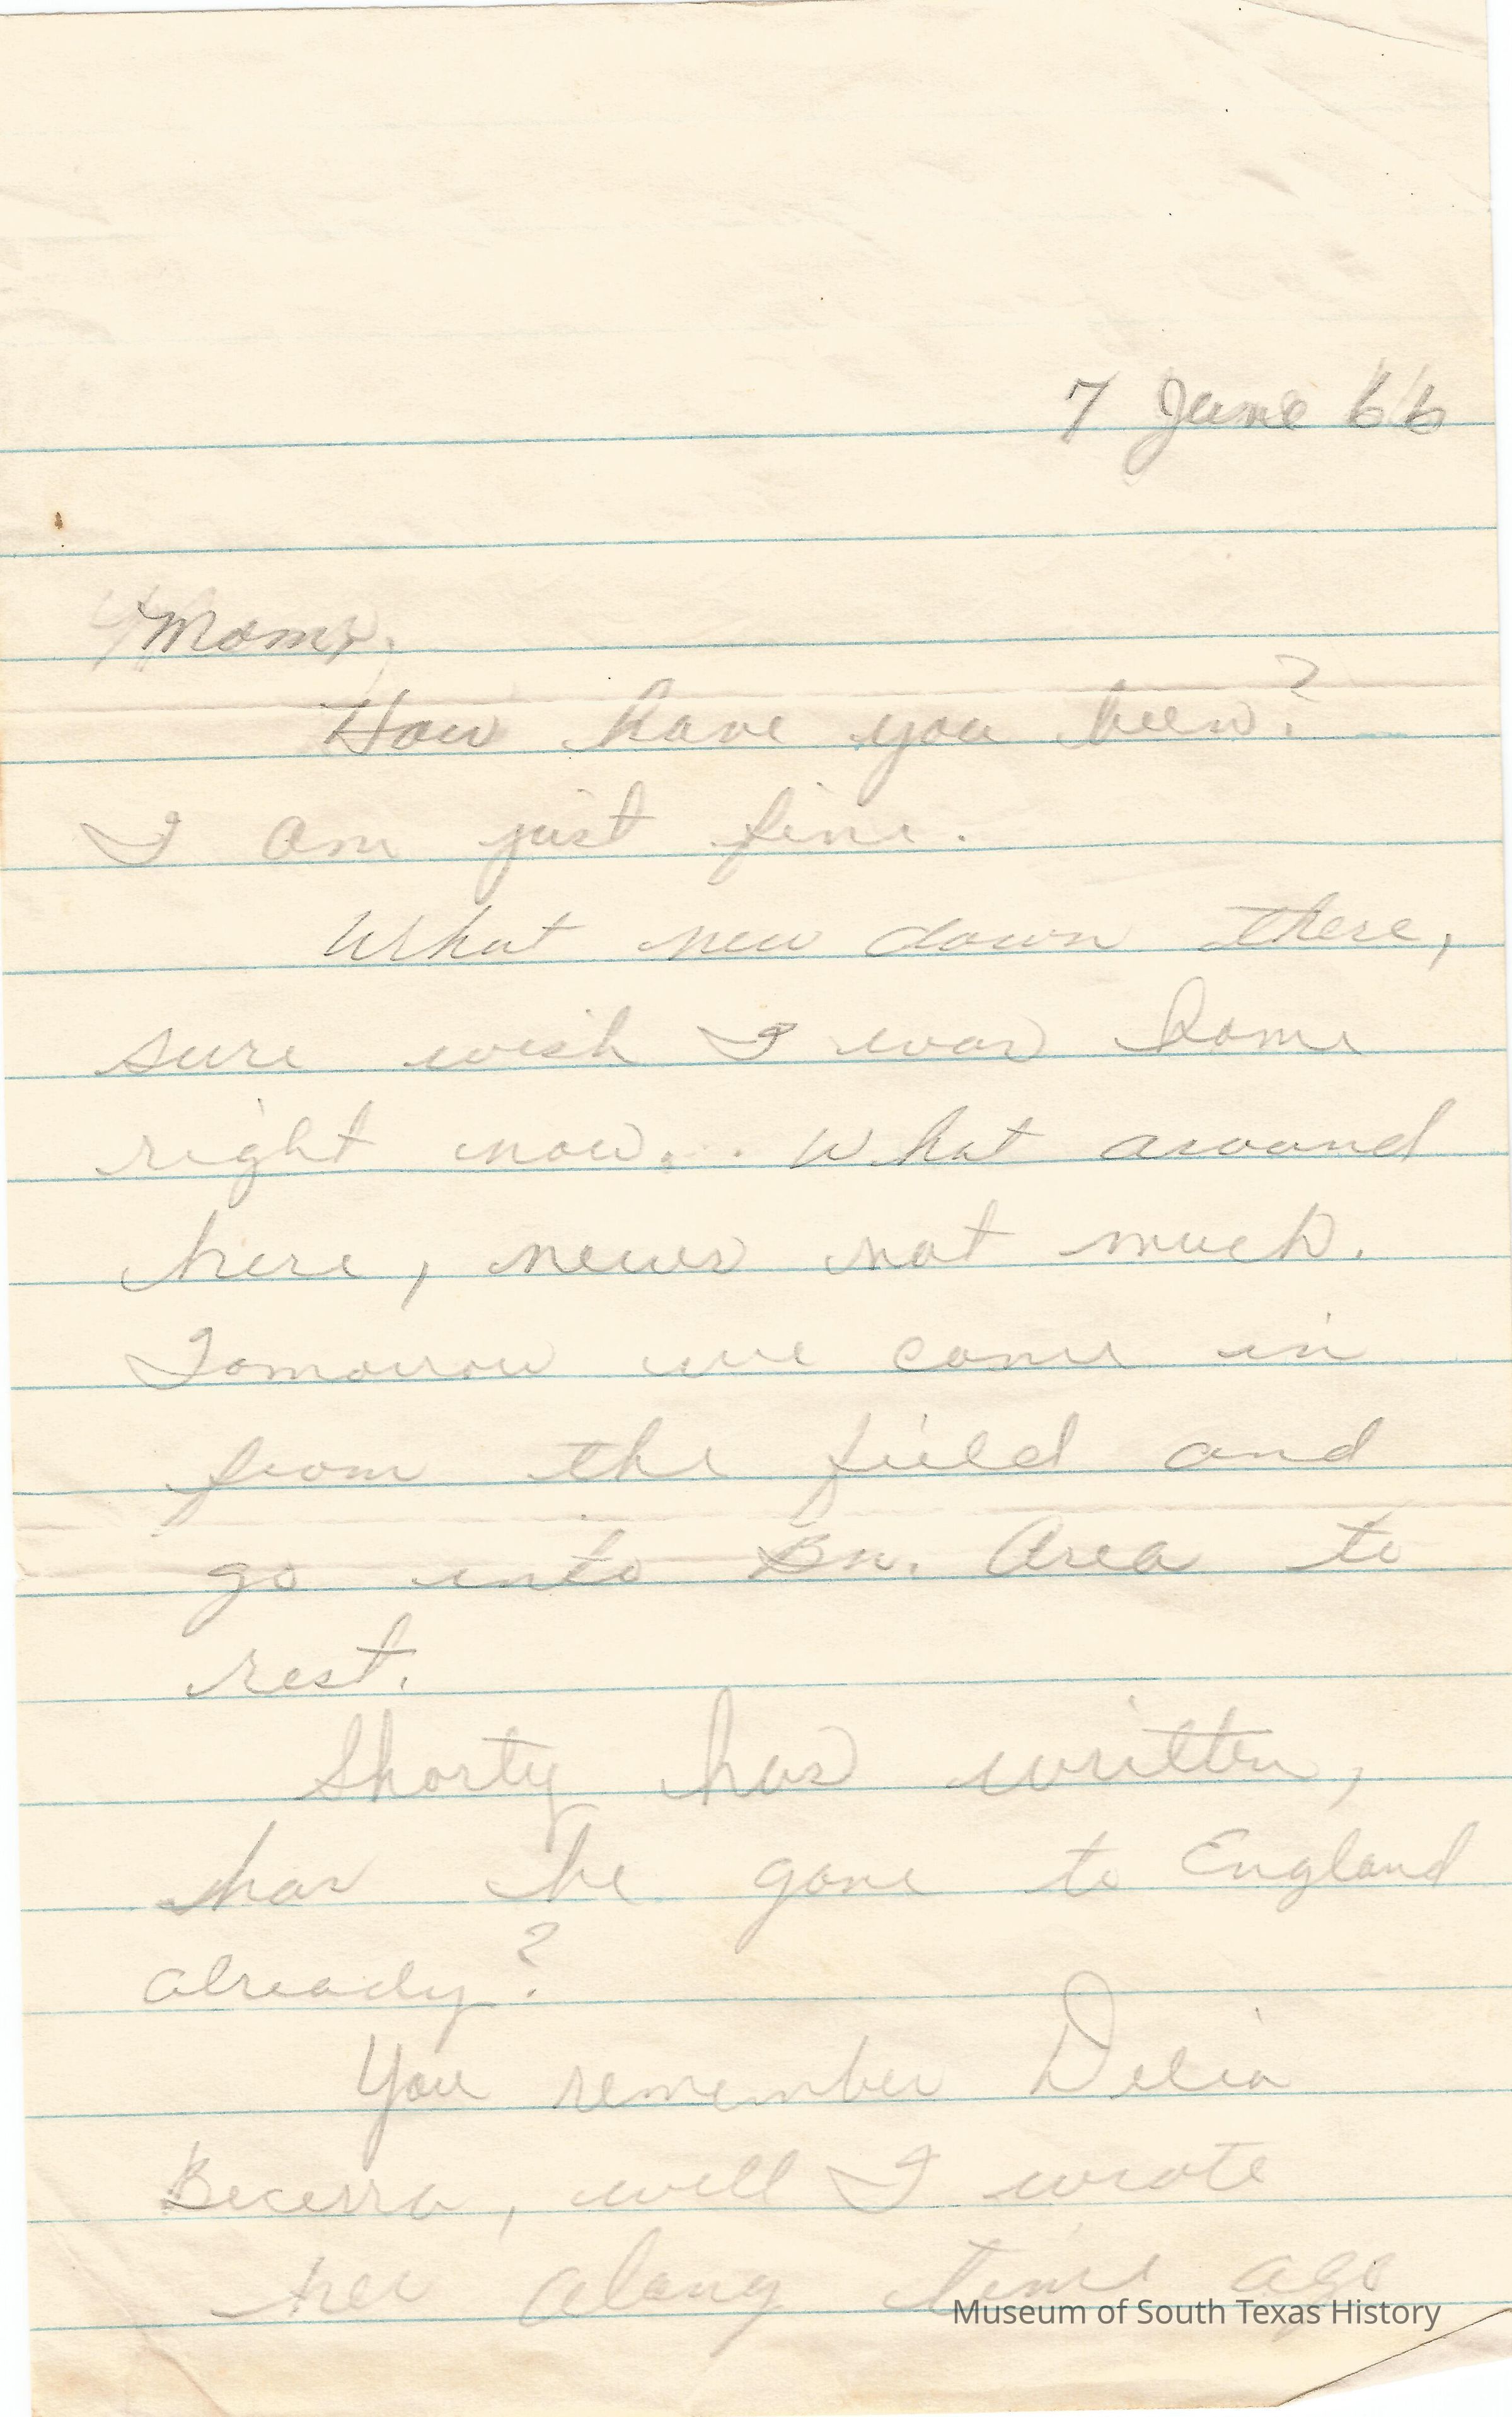 7 June 66
Mom,
How have you been?
I am just fine.
What new down there,
sure wish I was home
right now. What around
here, news not much.
Tomorrow we come in
from the field and
go into Bn. Area to
rest.
Shorty has written,
has he gone to England
already?
You remember Delia
Becerra, well I wrote
her along time ago
Museum of South Texas History